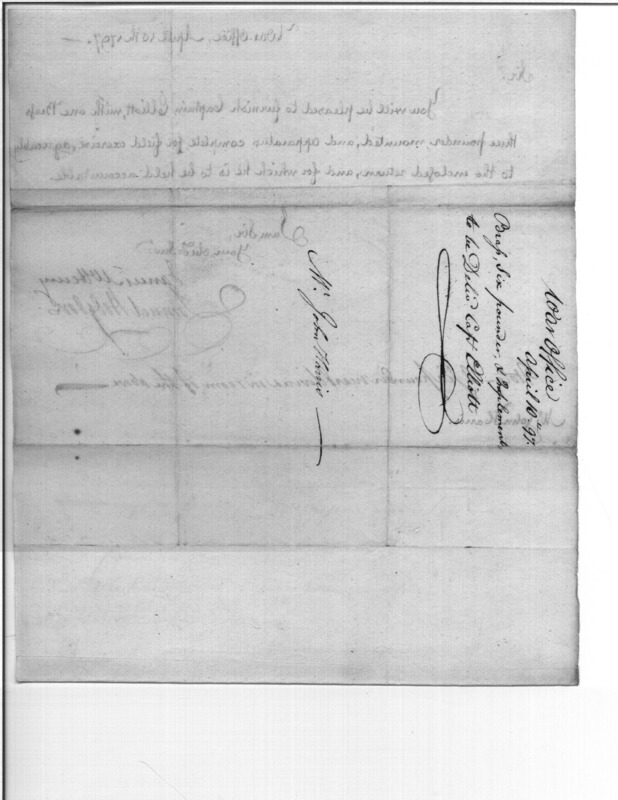 War Office
April 10th 97.
Brass, Six pounder, & Implements,
to be Deliv'd Capt Elliott
Mr John Harris
War Office, April 10th 1797.
Sir,
You will be pleased to furnish Captain Elliott, with one Brass
three pounder mounted, and apparatus complete for field exercise, agreeably
to the enclosed return, and for which he is to be held accountable.
I am Sir,
Your
Samuel Hodgdon
pounder in room of the above
Mr John Harris